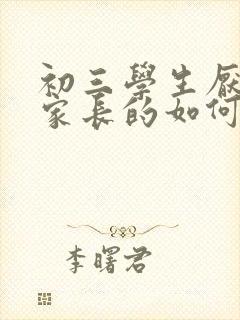 初三學生厭
家長的如何
李曙君